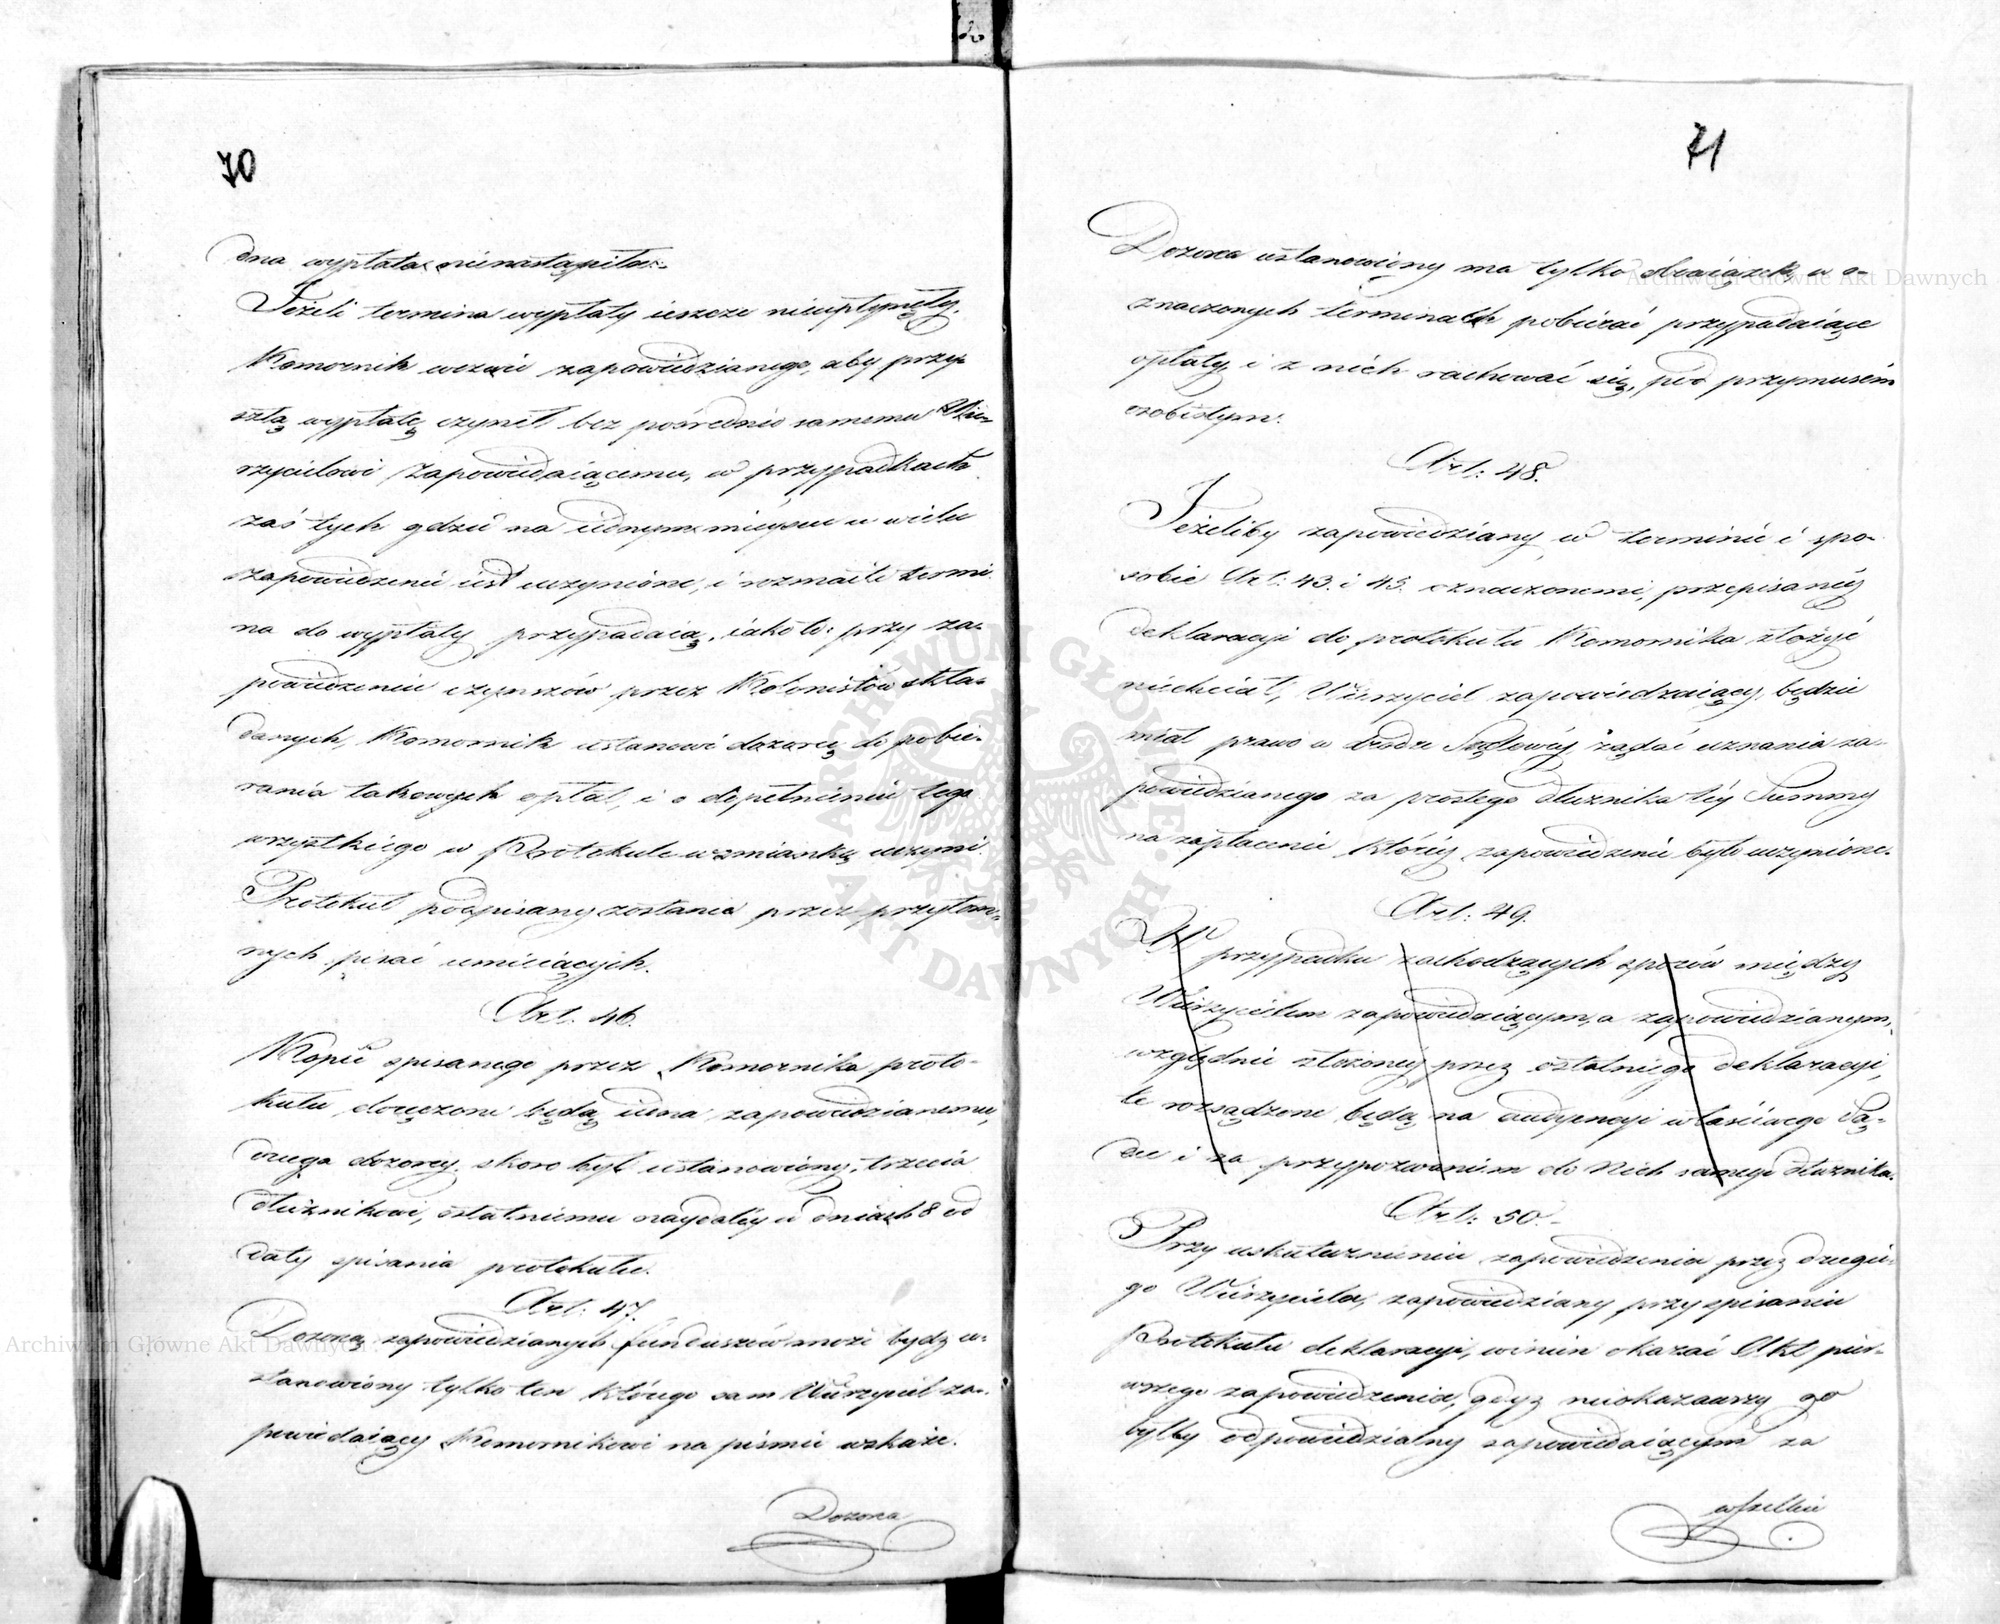 70
dna wypłata nienastąpiła.
Jeżeli termina wypłaty ieszcze nieupłynęły,
Komornik wezwie zapowiedzianego, aby przy-
szłą wypłatę czynił bez pośrednio samemu Wie-
rzycielowi zapowiedaiącemu, w przypadkach
zaś tych gdzie na iednym mieyscu u wielu
zapowiedzenie iest uczynione, i rozmaite termi
na do wypłaty przypadaią, iako to: przy za-
powiedzeniu czynszów przez Kolonistów skła-
danych, Komornik ustanowi dozorcę do pobie-
rania takowych opłat, i o dopełnieniu tego
wszystkiego w Protokule wzmiankę uczyni.
Protokuł podpisany zostanie przez przytom-
nych pisać umieiących.
Art: 46.
Kopie spisanego przez Komornika proto-
kułu doręczone będą iedna zapowiedzianemu,
druga dozorcy skoro był ustanowiony, trzecia
dłużnikowi, ostatniemu naydaléy w dniach 8 od
daty spisania protokułu.
Art: 47.
Dozorcą zapowiedzianych funduszów może bydź u-
stanowiony tylko ten którego sam Wierzyciel za-
powiedaiący Komornikowi na piśmie wskaże.
Dozorca
71
Dozorca ustanowiony ma tylko obowiązek w o-
znaczonych terminach pobierać przypadaiące
opłaty, i z nich rachować się, pod przymusem
osobistym.
Art: 48.
Jeżeliby zapowiedziany w terminie i spo-
sobie Art: 43. i 45. oznaczonemi, przepisanéy
deklaracyi do protokułu Komornika złożyć
niechciał, Wierzyciel zapowiedaiący, będzie
miał prawo w drodze Sądowéy żądać uznania za-
powiedzianego za prostego dłużnika téy Summy
na zapłacenie któréy zapowiedzenie było uczynione.
Art: 49.
W przypadku zachodzących sporów między
Wierzycielem zapowiedaiącym, a zapowiedzianym,
względnie złożonéy przez ostatniego deklaracyi,
te rozsądzone będą na audyencyi właściwego Są-
du i za przypozwaniem do nich samego dłużnika.
Art: 50.
Przy uskutecznieniu zapowiedzenia przez drugie-
go Wierzyciela, zapowiedziany przy spisaniu
Protokułu deklaracyi, winien okazać Akt pier-
wszego zapowiedzenia, gdyż nieokazawszy go
byłby odpowiedzialny zapowiedaiącym za
wszelkie
Archiwum Główne Akt Dawnych
Archiwum Główne Akt Dawnych
ARCHIWUM GŁÓWNE AKT DAWNYCH